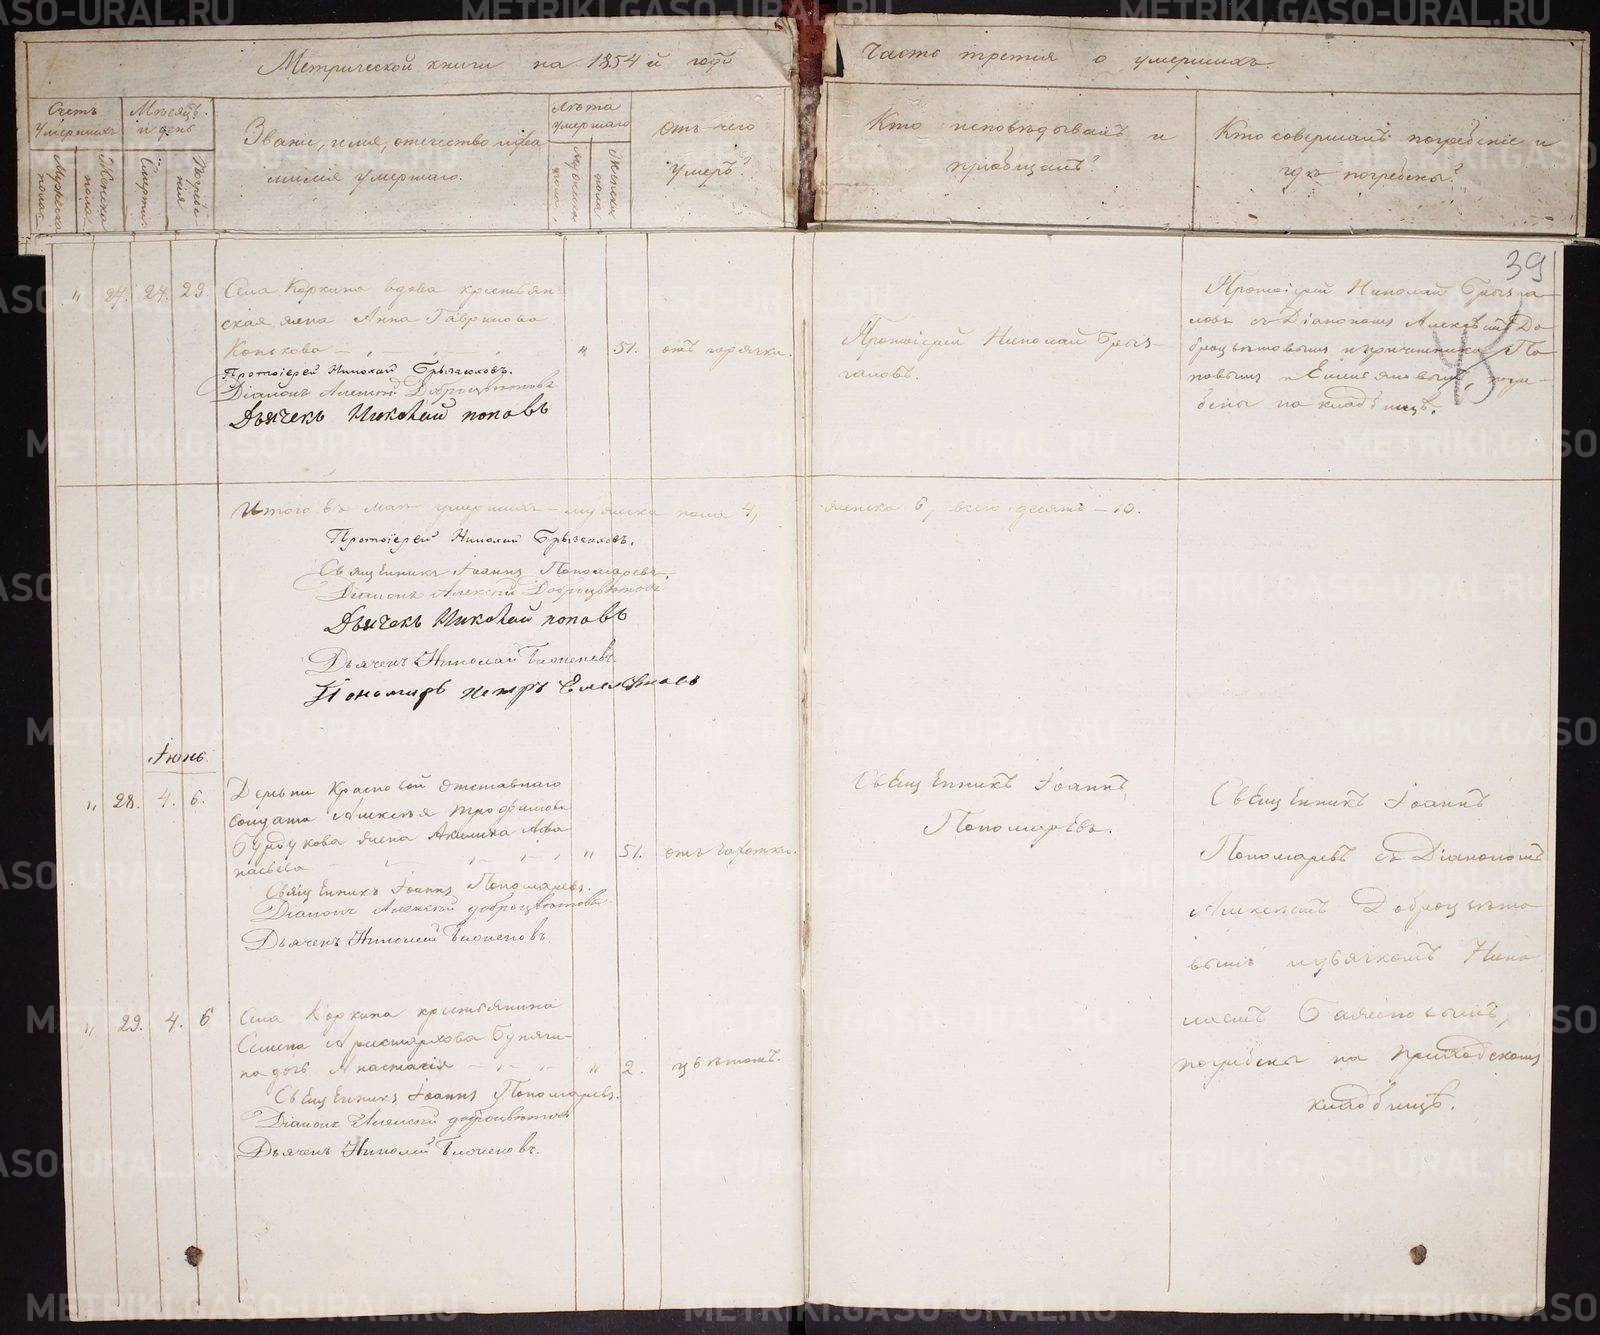 Метрической книги на 1854й годъ
Часть третія о умершихъ.
Счетъ умершихъ
Мужеска пола
Женска пола
Мѣсяцъ и день
Смерти
Погребенія
Званіе, имя, отчество и фа
милія умершаго.
Лѣта умершаго
Мужеска пола
Женска пола
Отъ чего
умеръ?
Кто исповѣдывалъ и
пріобщалъ?
Кто совершалъ погребеніе и
гдѣ погребены?
39
" 27. 24. 29.
Села Коркина вдова крестьян
ская жена Анна Гаврилова
Конькова
" 51. отъ горячки.
Протоіерей Николай
Діаконъ Алексій Доброцвѣтовъ
Дьячекъ Николай поповъ
Протоіерей Николай
Протоіерей Николай
съ Діакономъ Алексѣемъ До
броцвѣтовымъ и причетники По
повымъ и погре
бены на кладбищѣ.
Итого въ маѣ умершихъ мужеска пола 4,
женска 6, всего десять – 10.
Протоіерей Николай
Священникъ Іоаннъ Пономаревъ.
Діаконъ Алексій Доброцвѣтовъ
Дьячекъ Николай поповъ
Дьячекъ Николай
Пономарь петръ Емельяновъ
Іюнь.
" 28. 4. 6.
Деревни Красновой отставнаго
солдата Алексѣя Трофимова
жена Акилина Афа
насьева
" 51. отъ чахотки.
Священникъ Іоаннъ Пономаревъ.
Діаконъ Алексій доброцвѣтовъ
Дьячекъ Николай
Священникъ Іоаннъ
Пономаревъ.
Священникъ Іоаннъ
Пономаревъ съ Діакономъ
Алексѣемъ Доброцвѣто
вымъ и дьячкомъ Нико
лаемъ
погребены на приходскомъ
кладбищѣ.
" 29. 4. 6
Села Коркина крестьянина
Семена Аристархова
на дочь Анастасія
" 2. цвѣтомъ.
Священникъ Іоаннъ Пономаревъ.
Діаконъ Алексій доброцвѣтовъ
Дьячекъ Николай
METRIKI.GASO-URAL.RU